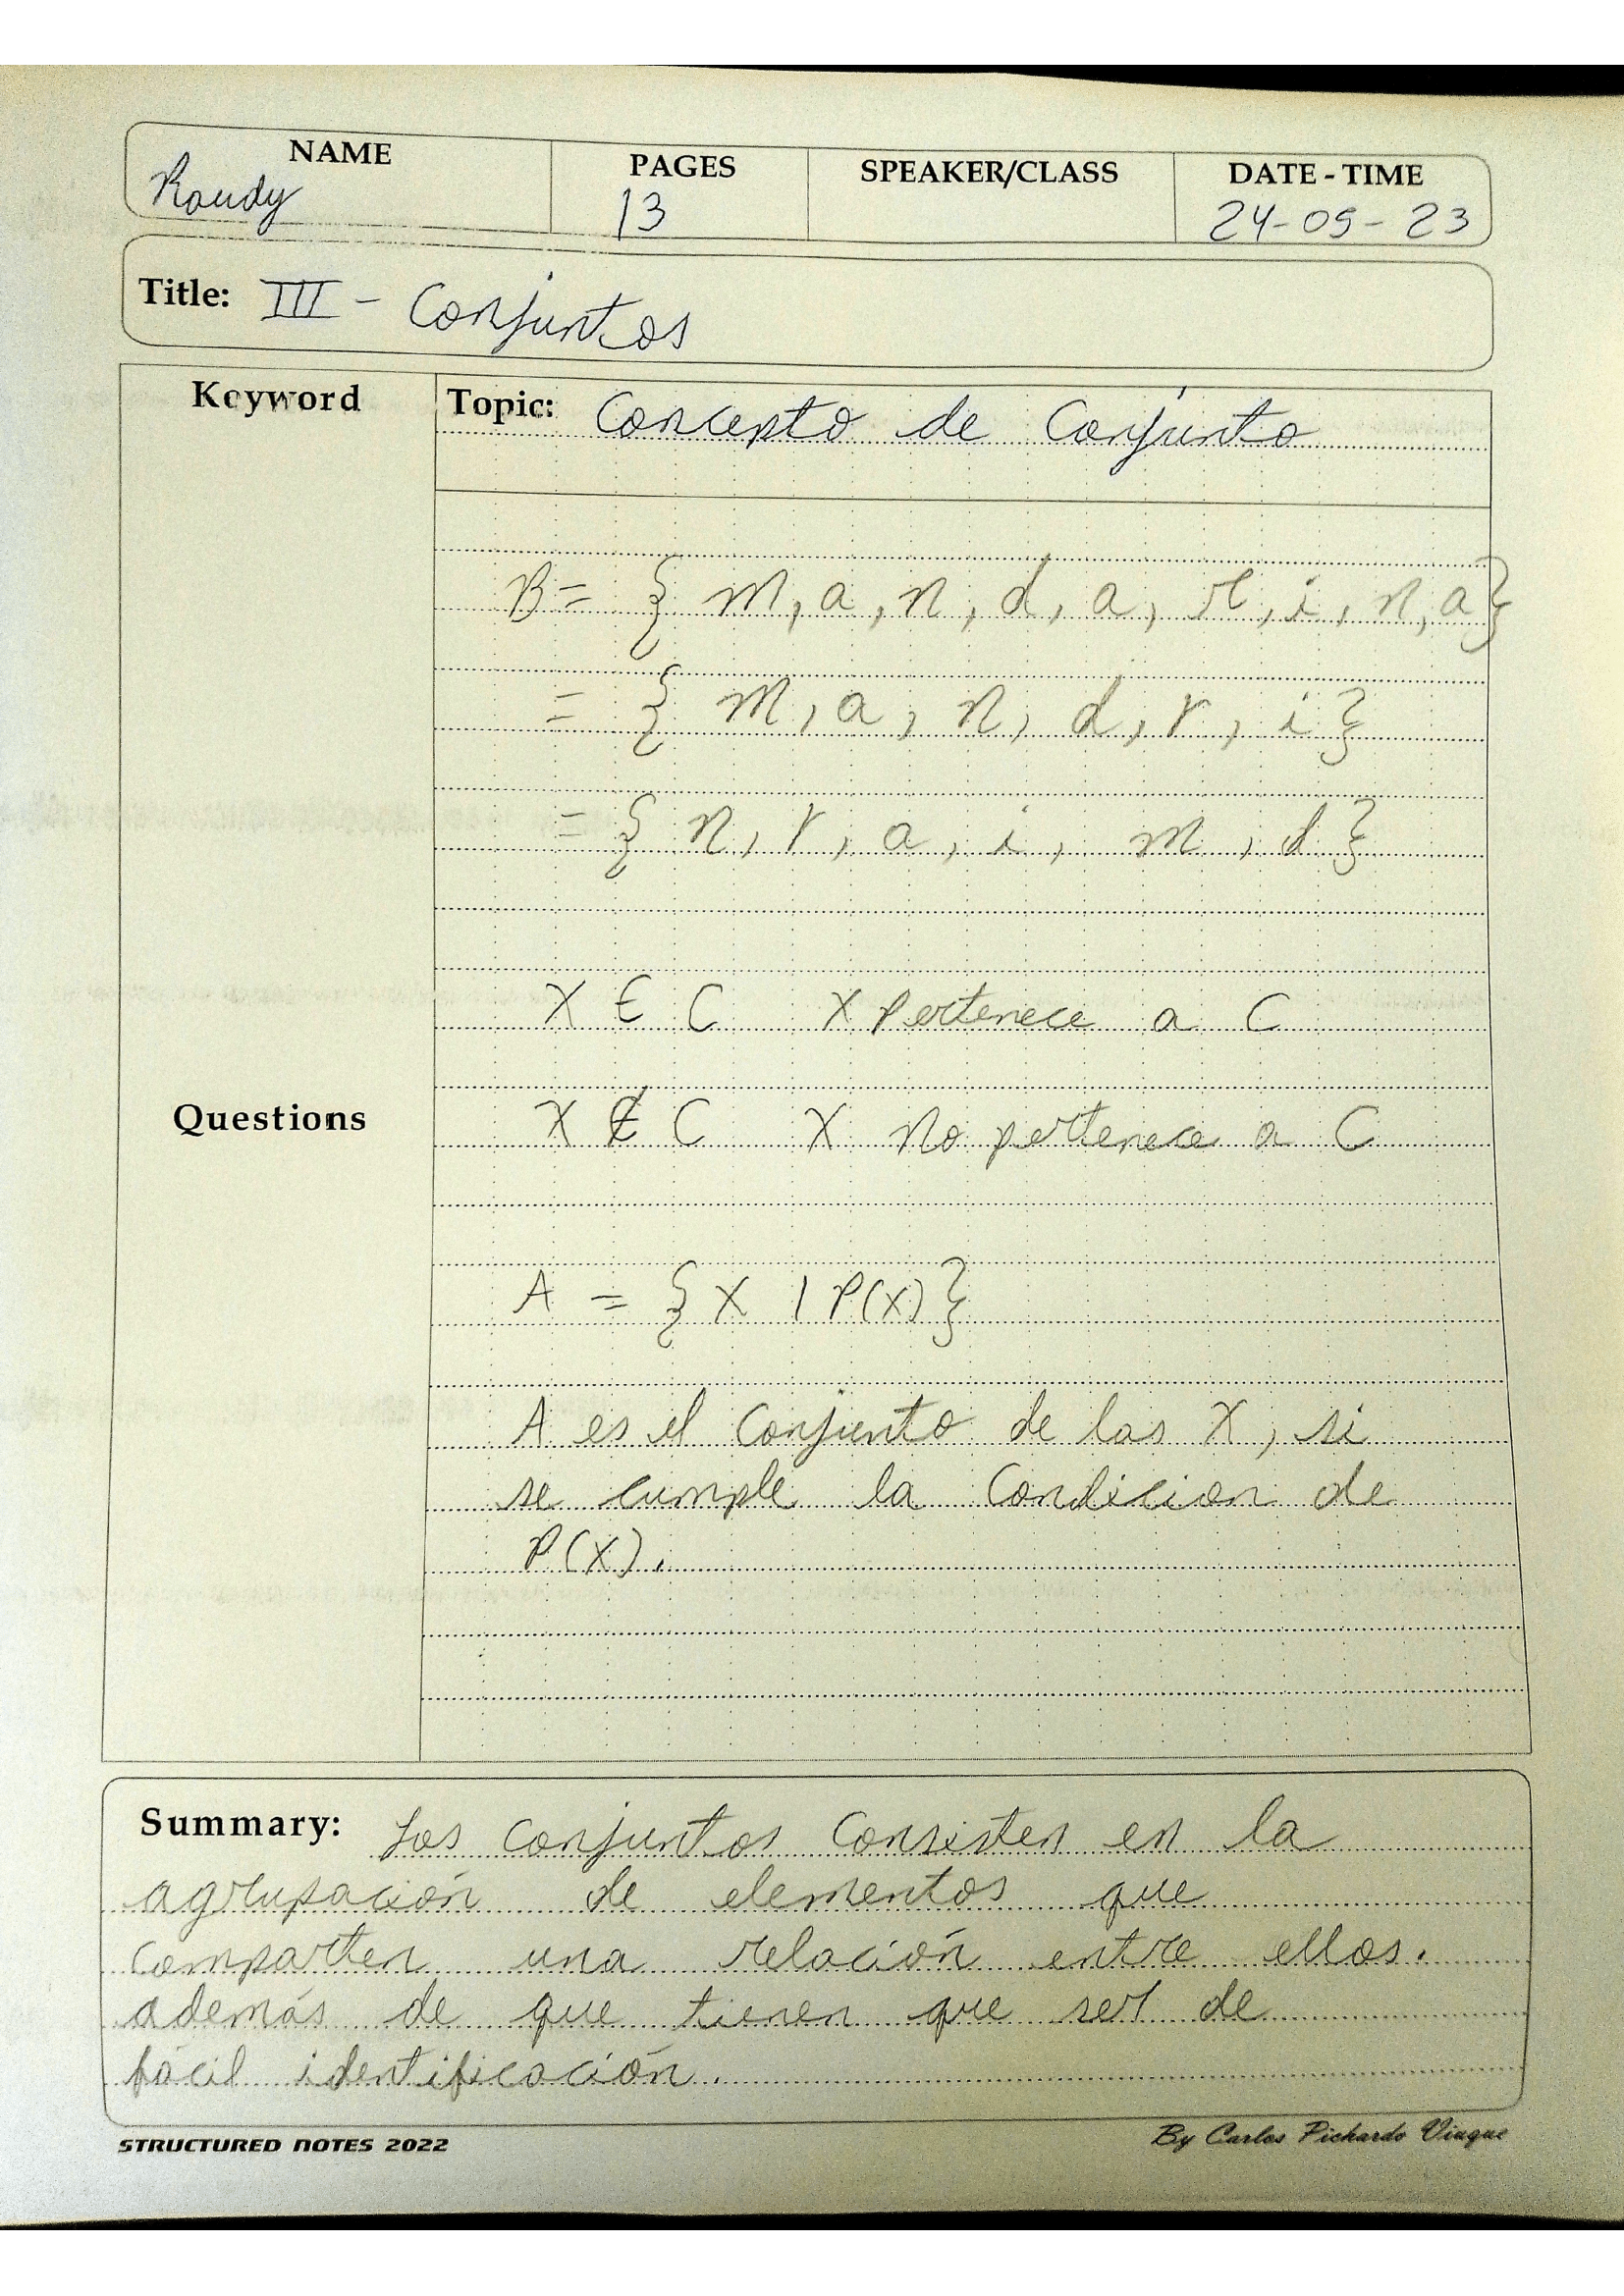 NAME PAGES SPEAKER/CLASS DATE - TIME
Roudy 13 24-09-23
Title: III - Conjuntos
Keyword Topic: Concepto de Conjunto
B = { m, a, n, d, a, r, i, n, a }
= { m, a, n, d, r, i }
= { n, r, a, i, m, d }
X ∈ C X Pertenece a C
Questions X ∉ C X No pertenece a C
A = { X | P(X) }
A es el Conjunto de las X, si
se cumple la Condicion de
P(X).
Summary: Los conjuntos Consisten en la
agrupación de elementos que
comparten una relación entre ellos.
además de que tienen que ser de
fácil identificación.
STRUCTURED NOTES 2022 By Carlos Pichardo Viuque